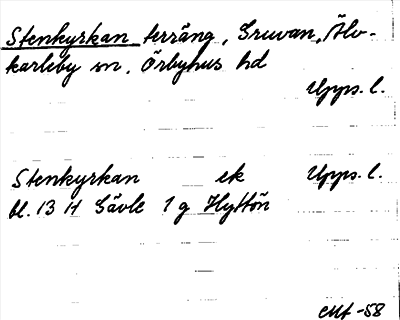 Stenkyrkan terräng, Gruvan, Älv-
karleby sn. Örbyhus hd
Upps. l.
Stenkyrkan ek Upps. l.
bl. 13 H Gävle 1 g Hyttön
CMf -58